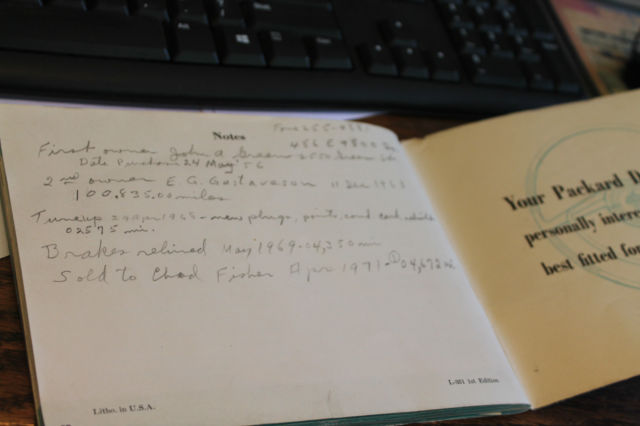 Notes
First owner John A Green
Date Purchase 24 May '56
2nd owner E. G. Gustaveson 11 Dec 1963
100,835.00 miles
Tuneup Apr 1968 - new plugs, points, cond.
02575 mi.
Brakes relined May 1969 - 04,350 mi
Sold to Chad Fisher Apr 1971 - 04,672 mi.
Litho. in U.S.A.
L-551 1st Edition
Your Packard D
personally inter
best fitted for